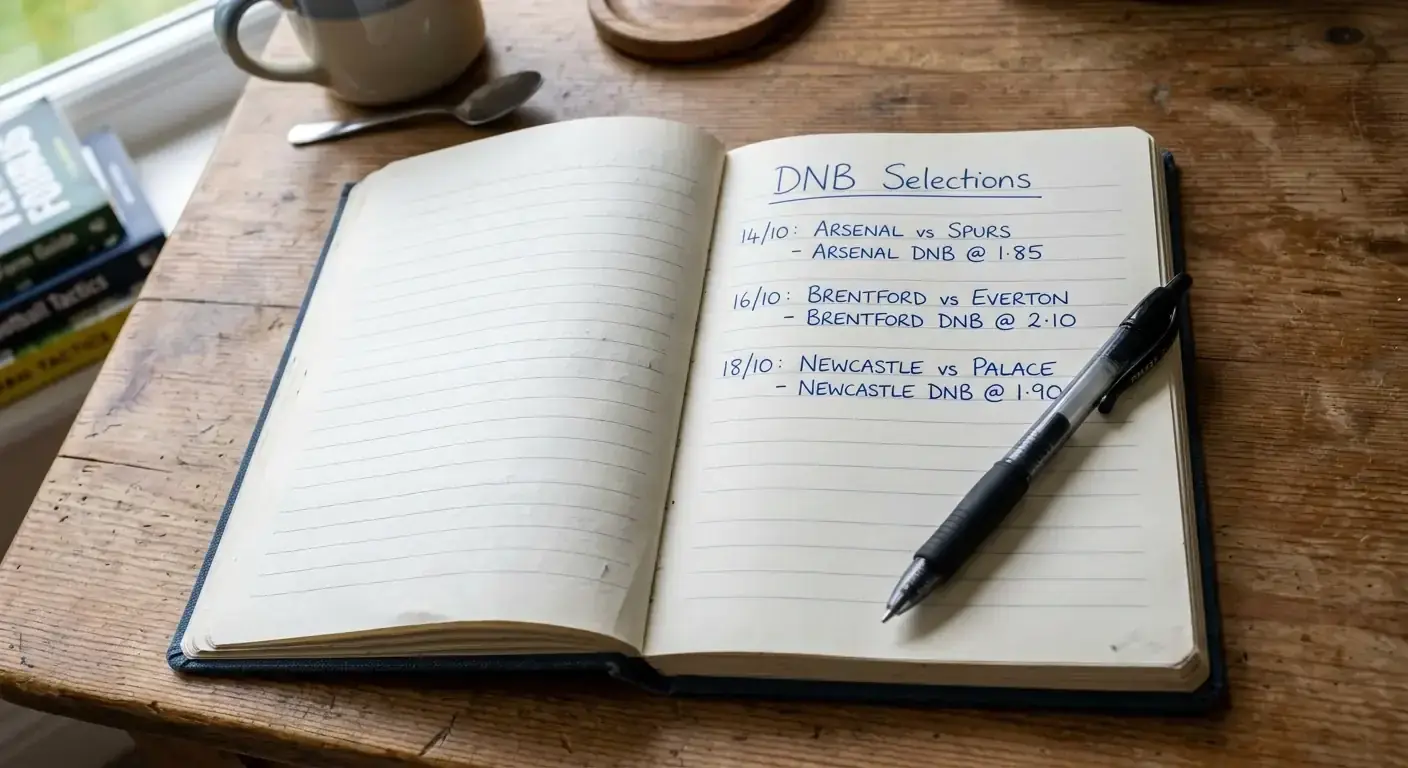 DNB Selections
14/10: ARSENAL vs SPURS
- ARSENAL DNB @ 1·85
16/10: BRENTFORD vs EVERTON
- BRENTFORD DNB @ 2·10
18/10: NEWCASTLE vs PALACE
- NEWCASTLE DNB @ 1·90
Tactics
TACTICS